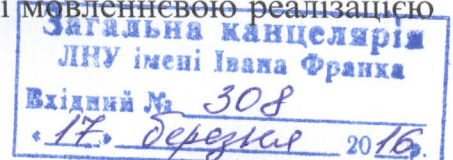 і мовленнєвою реалізацією
Загальна канцелярія
ЛНУ імені Івана Франка
Вхідний № 308
«17» березня 2016 р.